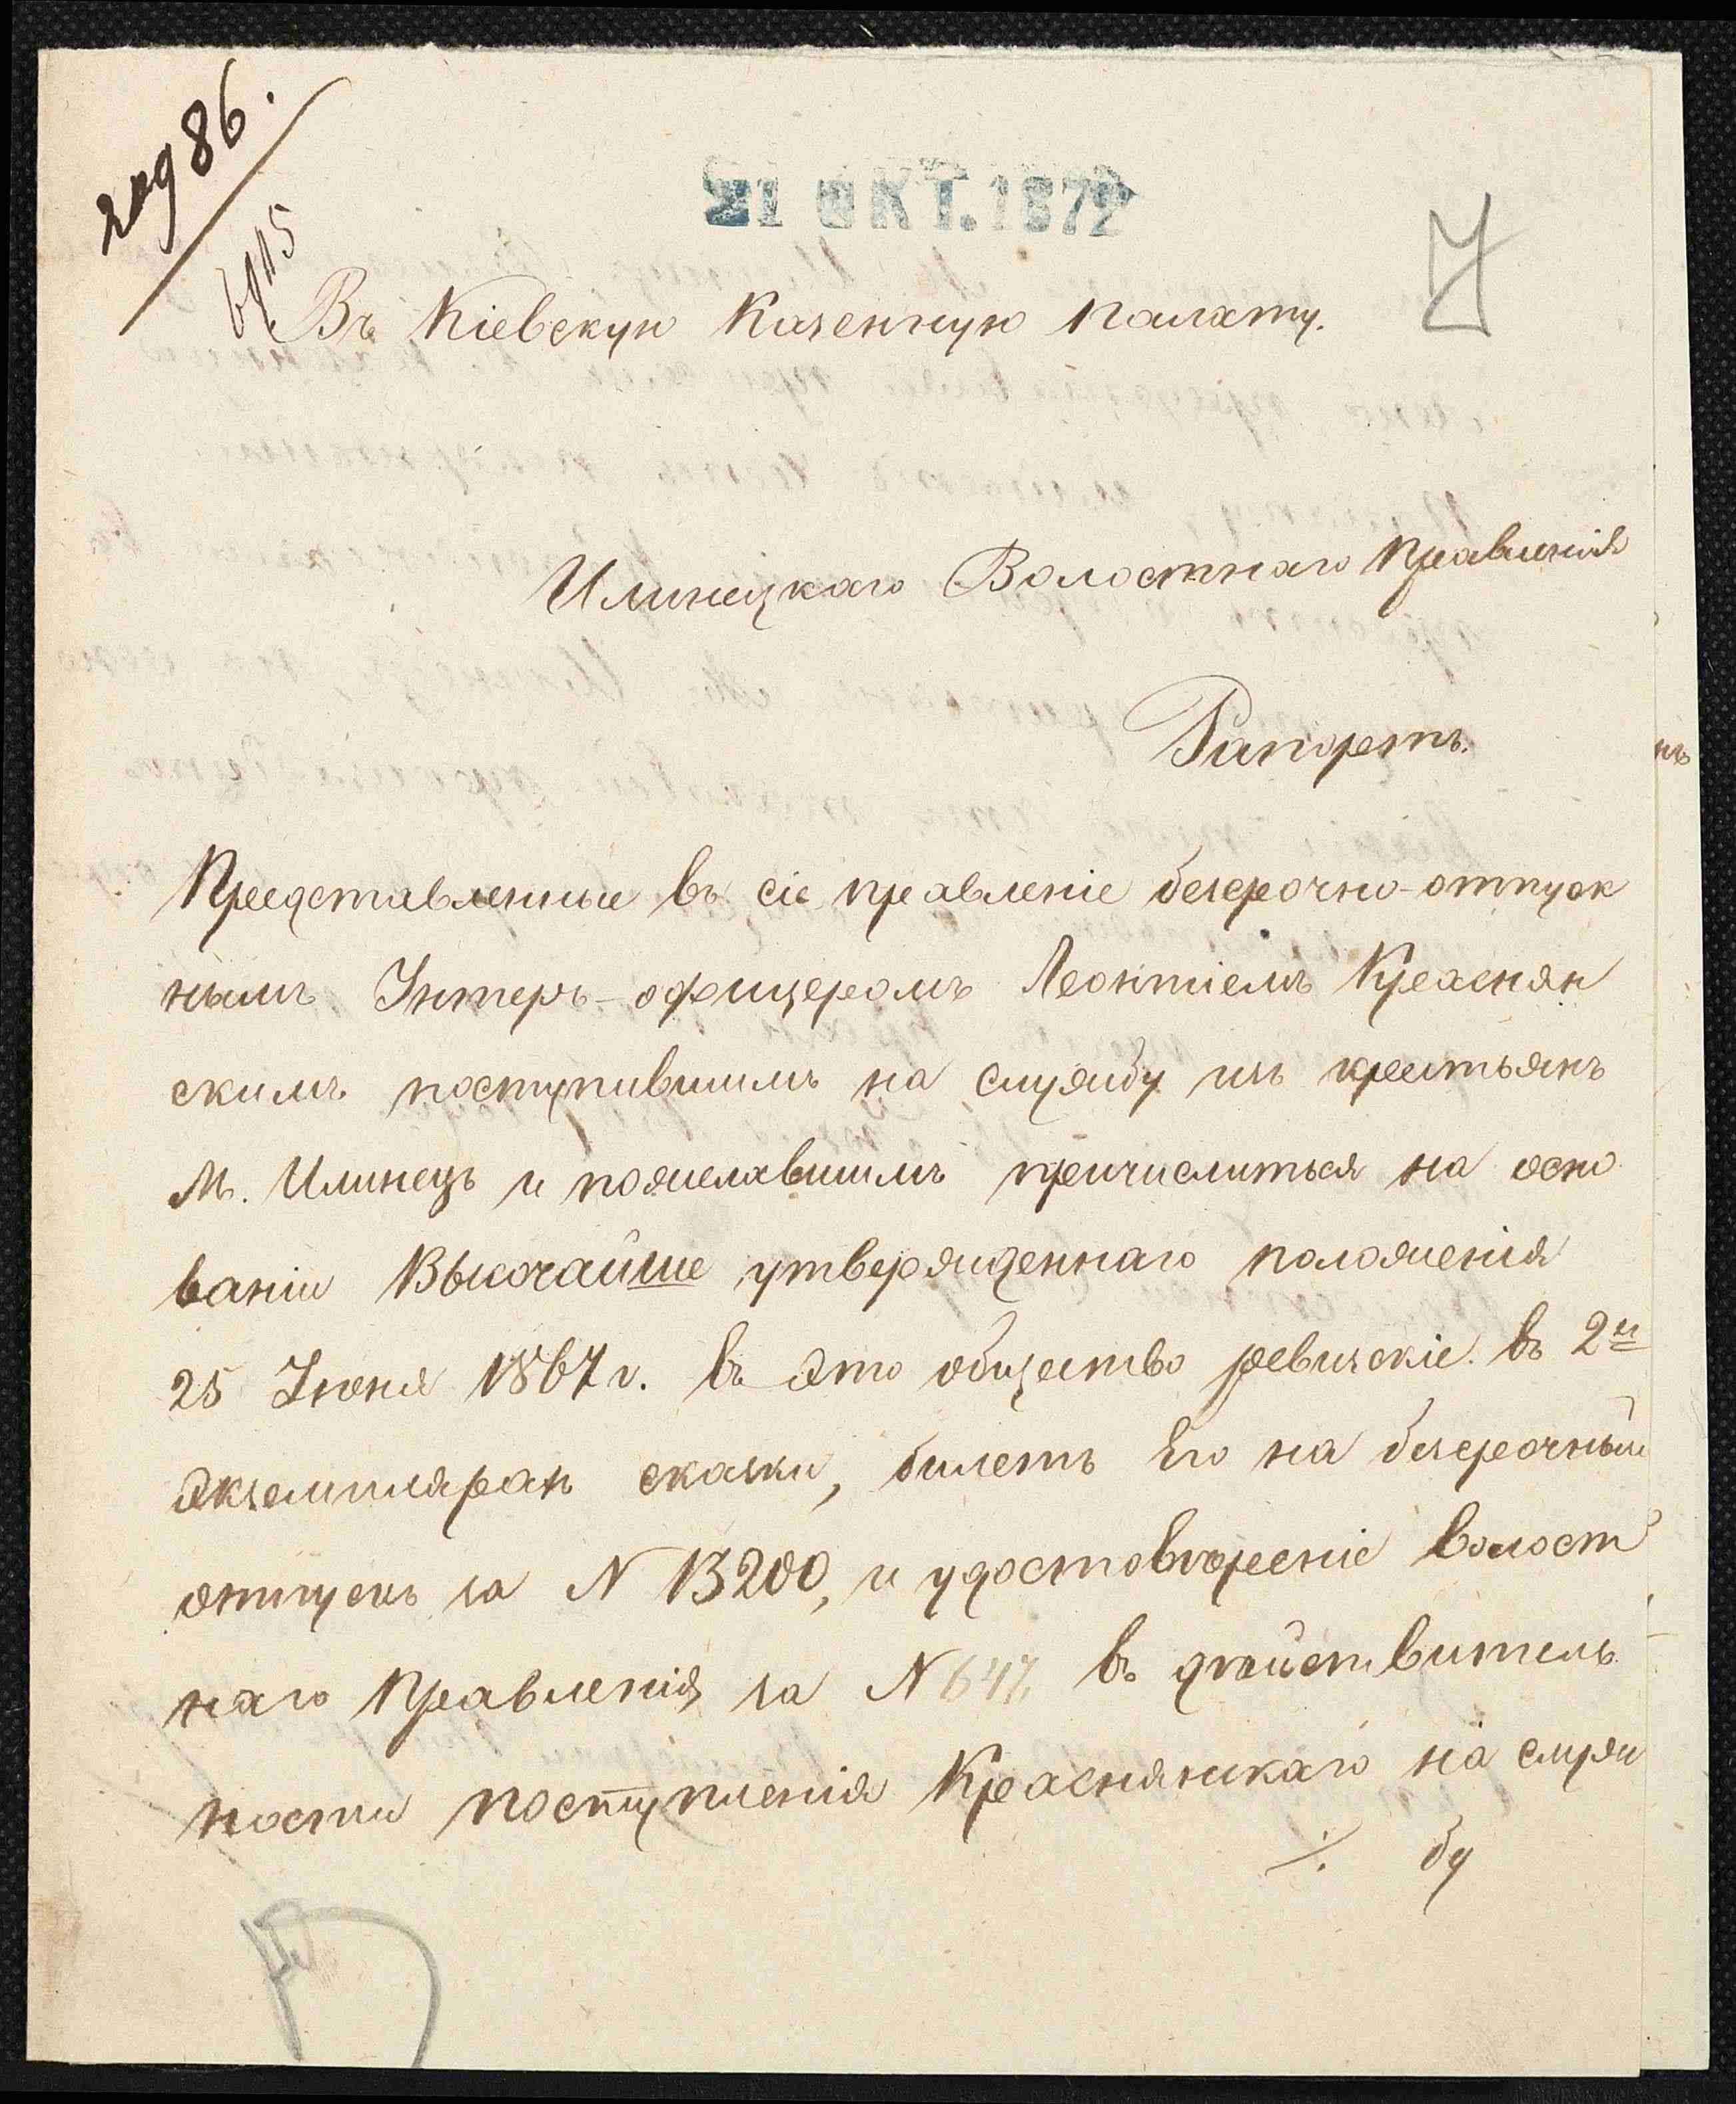 21 ОКТ. 1872
Въ Кіевскую Казенную Палату.
Илинецкаго Волостнаго Правленія
Рапортъ.
Представленные въ сіе правленіе безсрочно-отпуск
нымъ Унтеръ-офицеромъ Леонтіемъ Краснян
скимъ поступившимъ на службу изъ крестьянъ
М. Илинецъ и пожелавшимъ причислиться на осно
ваніи Высочайше утвержденнаго положенія
25 Іюня 1867 г. въ это общество ревизскіе въ 2 ͯ
экземплярахъ сказки, билетъ Его на безсрочный
отпускъ за N 13200, и удостовѣреніе волост
наго Правленія за N 647, въ дѣйствитель
ности поступленія Краснянскаго на служ
./. бу